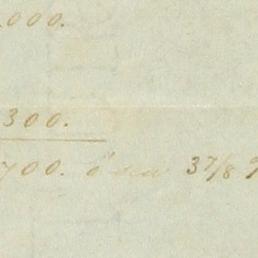 000.
300.
700. 37/8